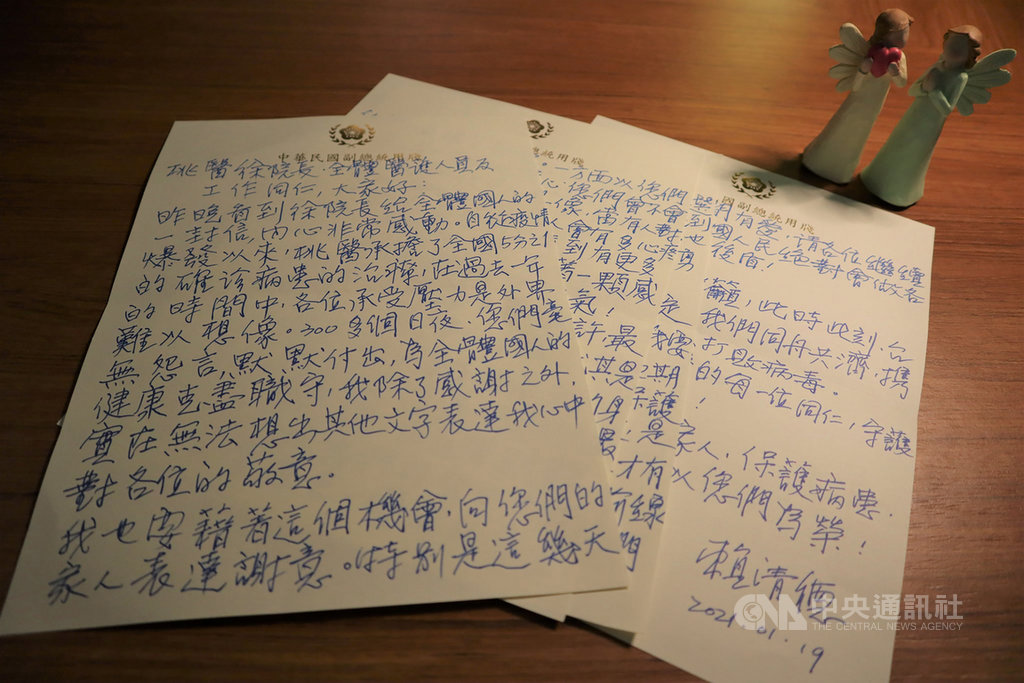 中華民國副總統用牋
桃醫徐院長、全體醫護人員及
工作同仁,大家好:
昨晚看到徐院長給全體國人的
一封信,內心非常感動。自從疫情
爆發以來,桃醫承擔了全國5分之1
的確診病患的治療,在過去一年
的時間中,各位承受壓力是外界
難以想像。300多個日夜,您們毫
無怨言、默默付出,為全體國人的
健康克盡職守,我除了感謝之外,
實在無法想出其他文字表達我心中
對各位的敬意.
我也要藉著這個機會,向您們的
家人表達謝意。特別是這幾天門
總統用牋
一方面以您們
您們會不會
像,當有人對
會有多心疼
到有更多
著一顆感
氣!
許最
其是
國副總統用牋
請各位繼續
國人民絕對會做各
後盾!
籲,此時此刻,
我們同舟共濟,攜
打敗病毒。
的每一位同仁,守護
保護!
是家人,保護病患.
才有以您們為榮!
賴清德
2021.01.19
中央通訊社
THE CENTRAL NEWS AGENCY